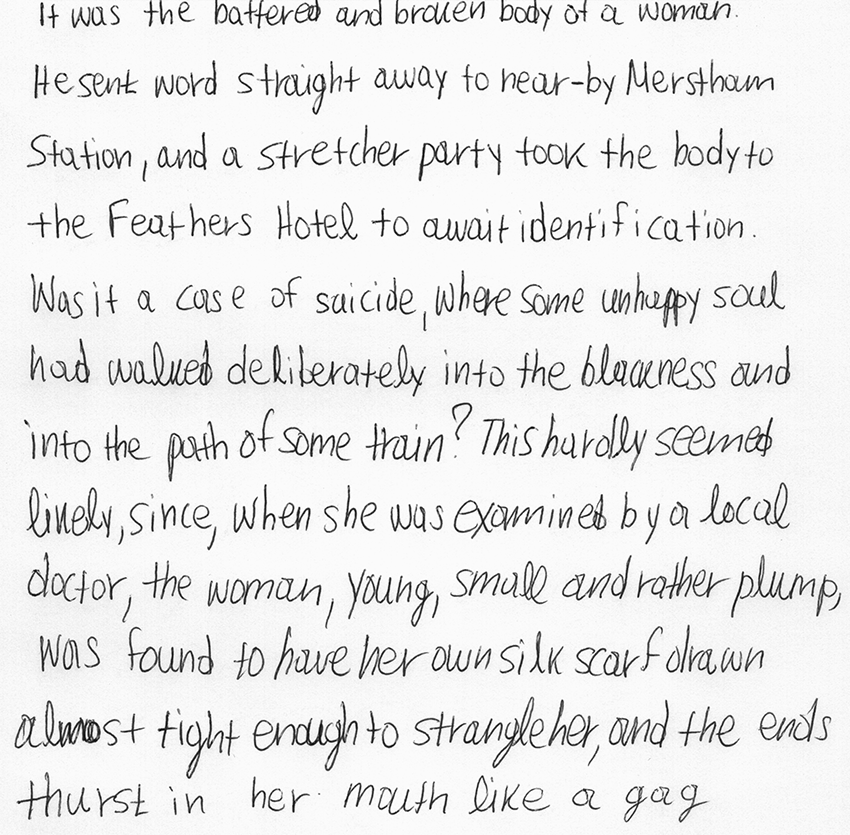 It was the battered and broken body of a woman.
He sent word straight away to near-by Merstham
Station, and a stretcher party took the body to
the Feathers Hotel to await identification.
Was it a case of suicide, where some unhappy soul
had walked deliberately into the blackness and
into the path of some train? This hardly seemed
likely, since, when she was examined by a local
doctor, the woman, young, small and rather plump,
was found to have her own silk scarf drawn
almost tight enough to strangle her, and the ends
thurst in her mouth like a gag